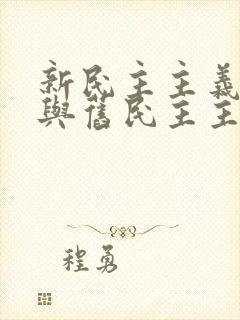 新民主主義
與舊民主主
程勇